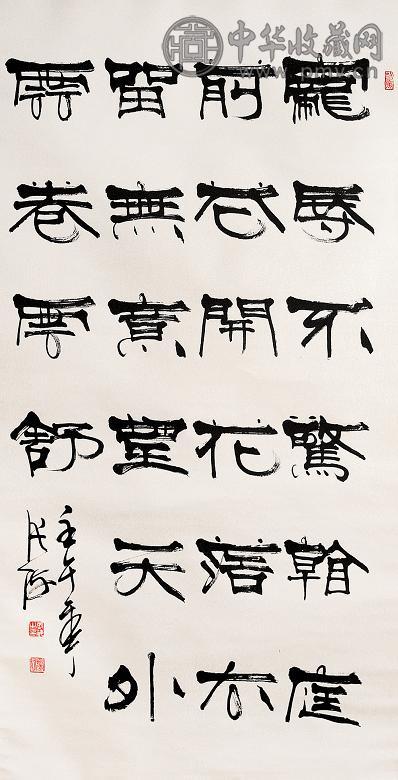 中华收藏网
www.pmv.cn
寵辱不驚看庭
前花開花落去
留無意望天外
雲卷雲舒
壬午年